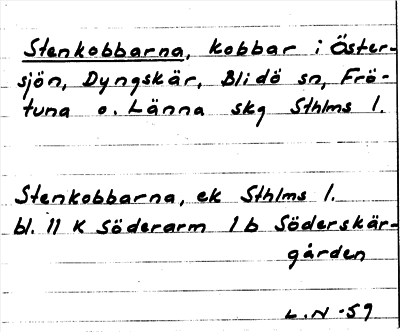 Stenkobbarna, kobbar i Öster-
sjön, Dyngskär, Blidö sn, Frö-
tuna o. Länna skg Sthlms l.
Stenkobbarna, ek Sthlms l.
bl. 11 K Söderarm 1 b Söderskär-
gården
L.N -59